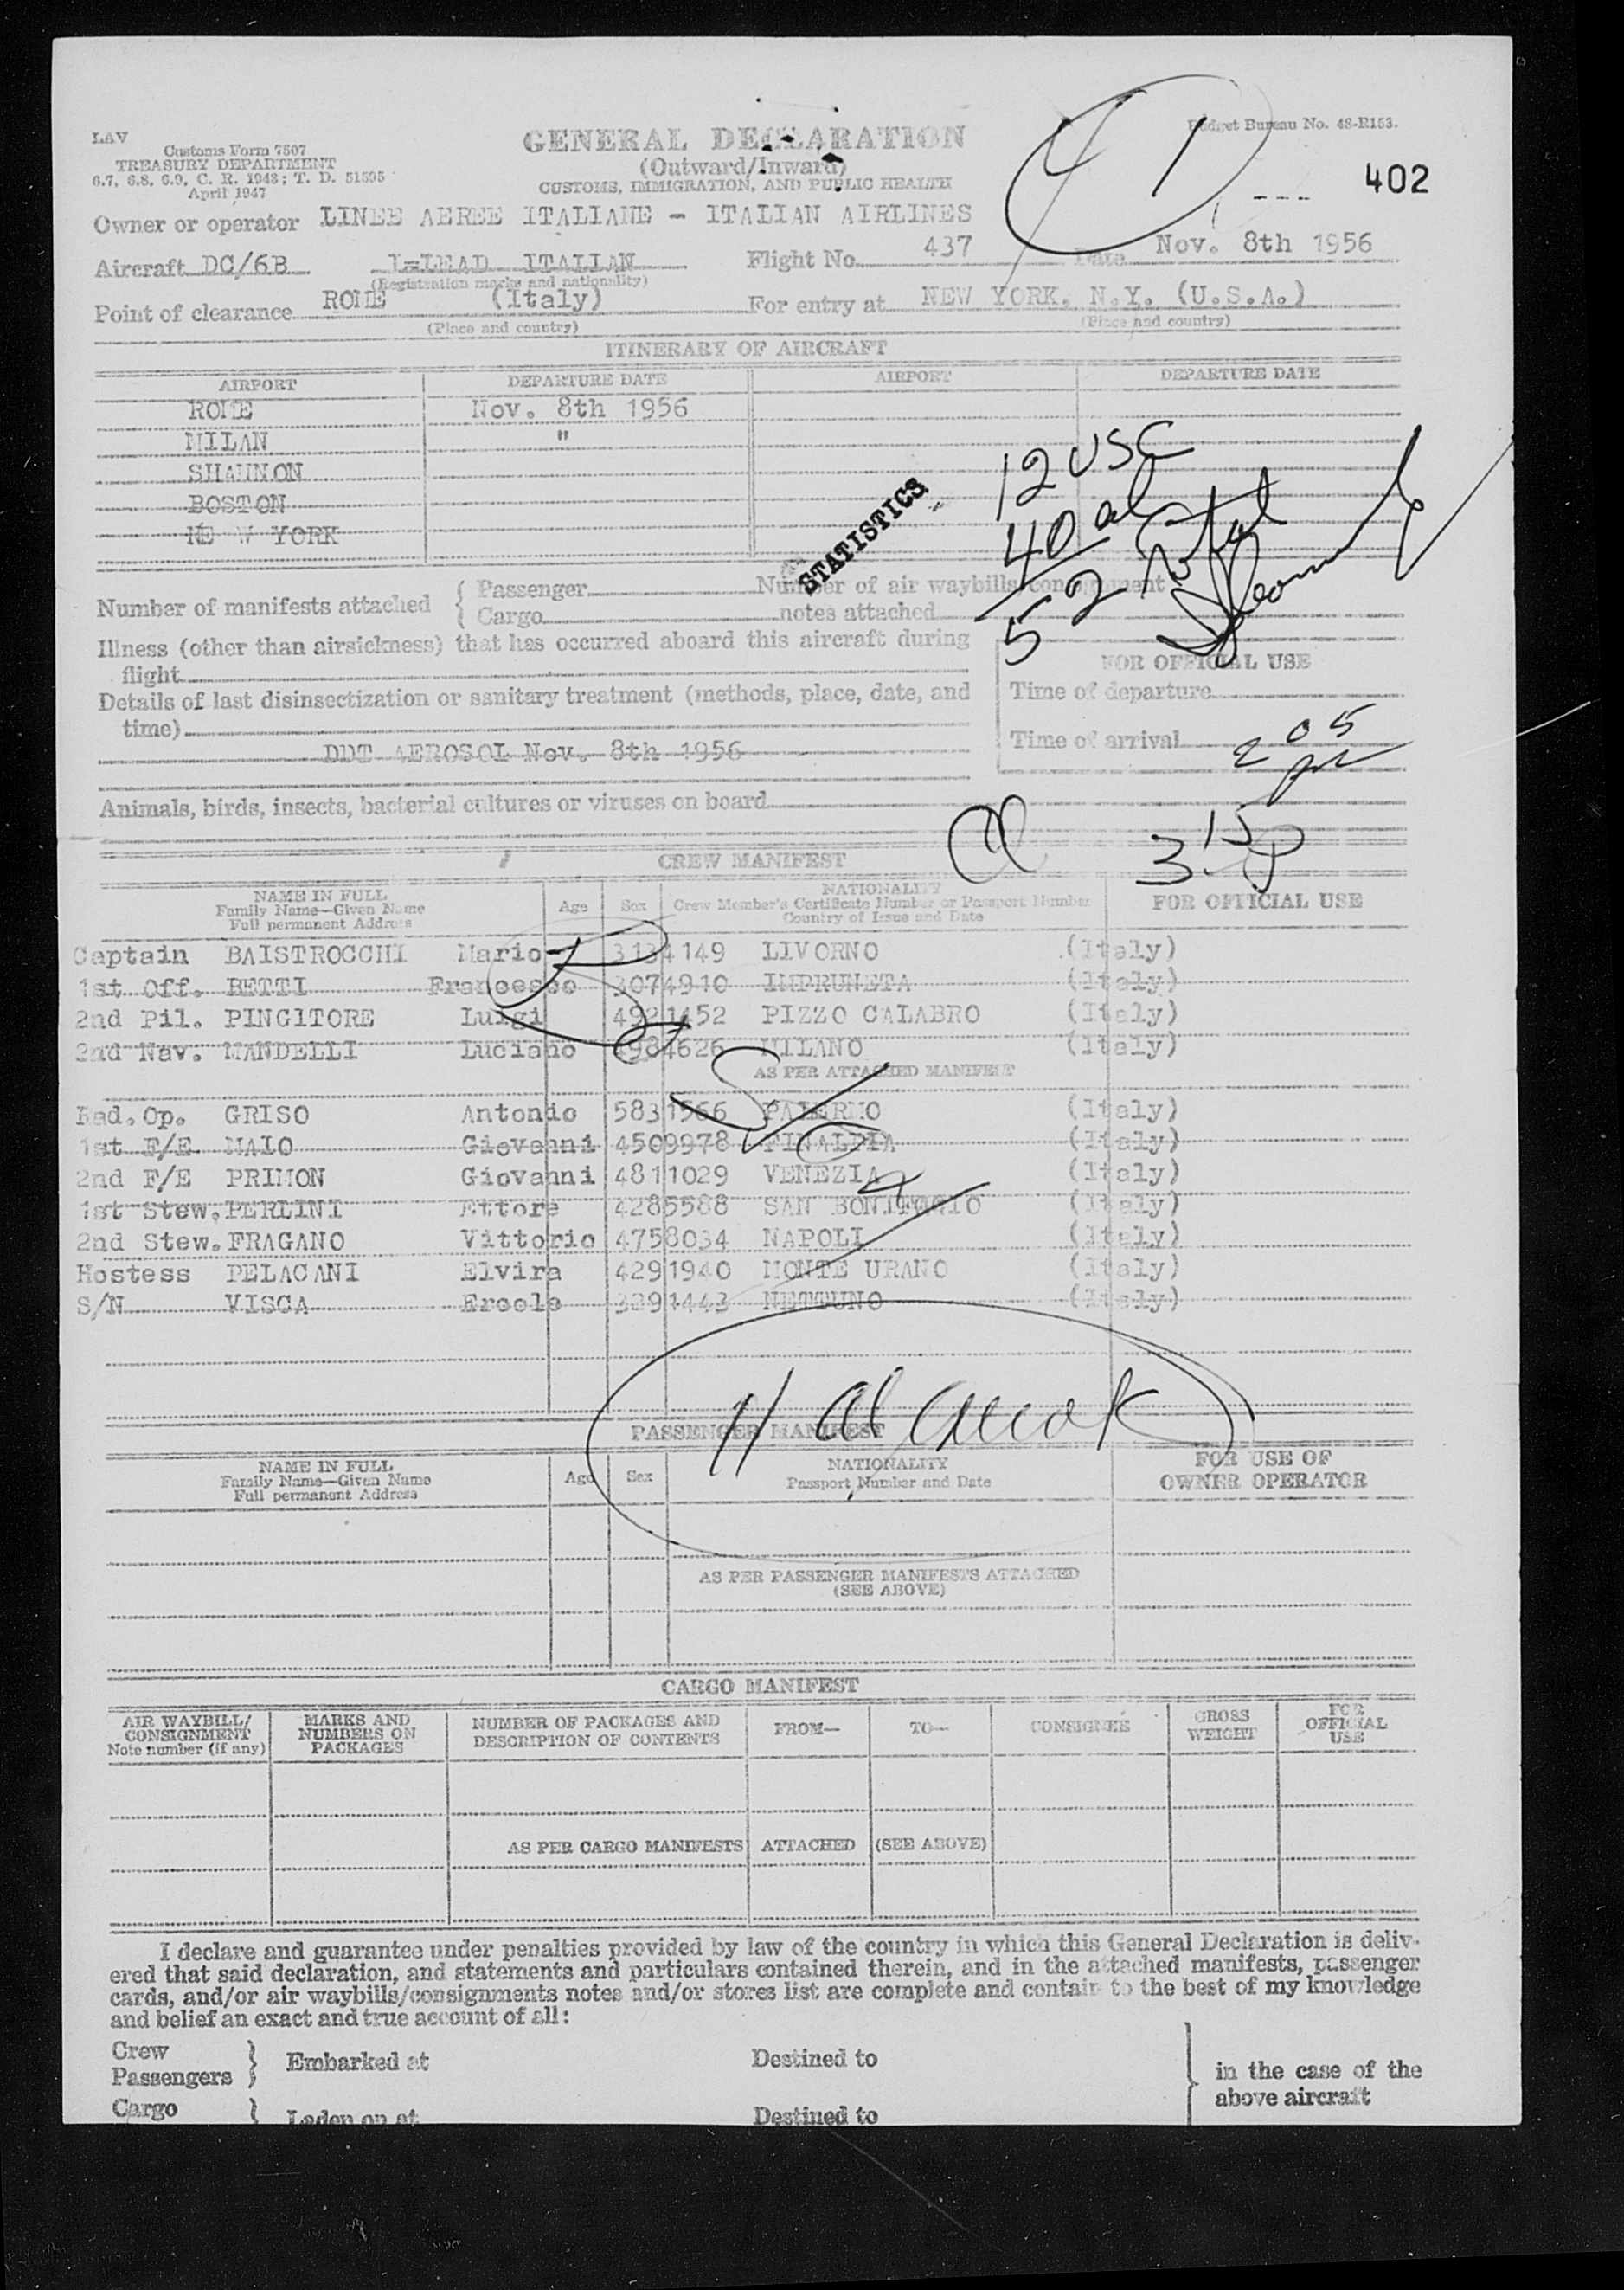 LAV
Customs Form 7507
TREASURY DEPARTMENT
6.7, 6.8, 6.9, C. R. 1943; T. D. 51595
April 1947
GENERAL DECLARATION
(Outward/Inward)
CUSTOMS, IMMIGRATION, AND PUBLIC HEALTH
Budget Bureau No. 48-R153.
402
Owner or operator LINEE AEREE ITALIANE - ITALIAN AIRLINES
Aircraft DC/6B I-LEAD ITALIAN Flight No. 437 Date Nov. 8th 1956
(Registration marks and nationality)
Point of clearance ROME (Italy) For entry at NEW YORK, N.Y. (U.S.A.)
(Place and country) (Place and country)
ITINERARY OF AIRCRAFT
AIRPORT DEPARTURE DATE AIRPORT DEPARTURE DATE
ROME Nov. 8th 1956
MILAN "
SHANNON
BOSTON
NEW YORK
12 USC
40 al
52 Total
STATISTICS
Number of manifests attached { Passenger Number of air waybills/consignment
Cargo notes attached
Illness (other than airsickness) that has occurred aboard this aircraft during
flight
Details of last disinsectization or sanitary treatment (methods, place, date, and
time)
DDT AEROSOL Nov. 8th 1956
FOR OFFICIAL USE
Time of departure
Time of arrival 2 05
Animals, birds, insects, bacterial cultures or viruses on board
3 15 P
CREW MANIFEST
NAME IN FULL
Family Name—Given Name
Full permanent Address
Age Sex
NATIONALITY
Crew Member's Certificate Number or Passport Number
Country of Issue and Date
FOR OFFICIAL USE
Captain BAISTROCCHI Mario 3134149 LIVORNO (Italy)
1st Off. BETTI Francesco 3074910 IMPRUNETA (Italy)
2nd Pil. PINGITORE Luigi 4921452 PIZZO CALABRO (Italy)
2nd Nav. MANDELLI Luciano 4984626 MILANO (Italy)
AS PER ATTACHED MANIFEST
Rad. Op. GRISO Antonio 5831566 PALERMO (Italy)
1st F/E MAIO Giovanni 4509978 FINALPIA (Italy)
2nd F/E PRIMON Giovanni 4811029 VENEZIA (Italy)
1st Stew. PERLINI Ettore 4285588 SAN BONIFACIO (Italy)
2nd Stew. FRAGANO Vittorio 4758034 NAPOLI (Italy)
Hostess PELACANI Elvira 4291940 MONTE URANO (Italy)
S/N VISCA Ercole 3291443 NETTUNO (Italy)
11 al
PASSENGER MANIFEST
NAME IN FULL
Family Name—Given Name
Full permanent Address
Age Sex
NATIONALITY
Passport Number and Date
FOR USE OF
OWNER OPERATOR
AS PER PASSENGER MANIFESTS ATTACHED
(SEE ABOVE)
CARGO MANIFEST
AIR WAYBILL/
CONSIGNMENT
Note number (if any)
MARKS AND
NUMBERS ON
PACKAGES
NUMBER OF PACKAGES AND
DESCRIPTION OF CONTENTS
FROM— TO— CONSIGNEE
GROSS
WEIGHT
FOR
OFFICIAL
USE
AS PER CARGO MANIFESTS ATTACHED (SEE ABOVE)
I declare and guarantee under penalties provided by law of the country in which this General Declaration is deliv-
ered that said declaration, and statements and particulars contained therein, and in the attached manifests, passenger
cards, and/or air waybills/consignments notes and/or stores list are complete and contain to the best of my knowledge
and belief an exact and true account of all:
Crew
Passengers } Embarked at Destined to
in the case of the
above aircraft
Cargo } Laden on at Destined to